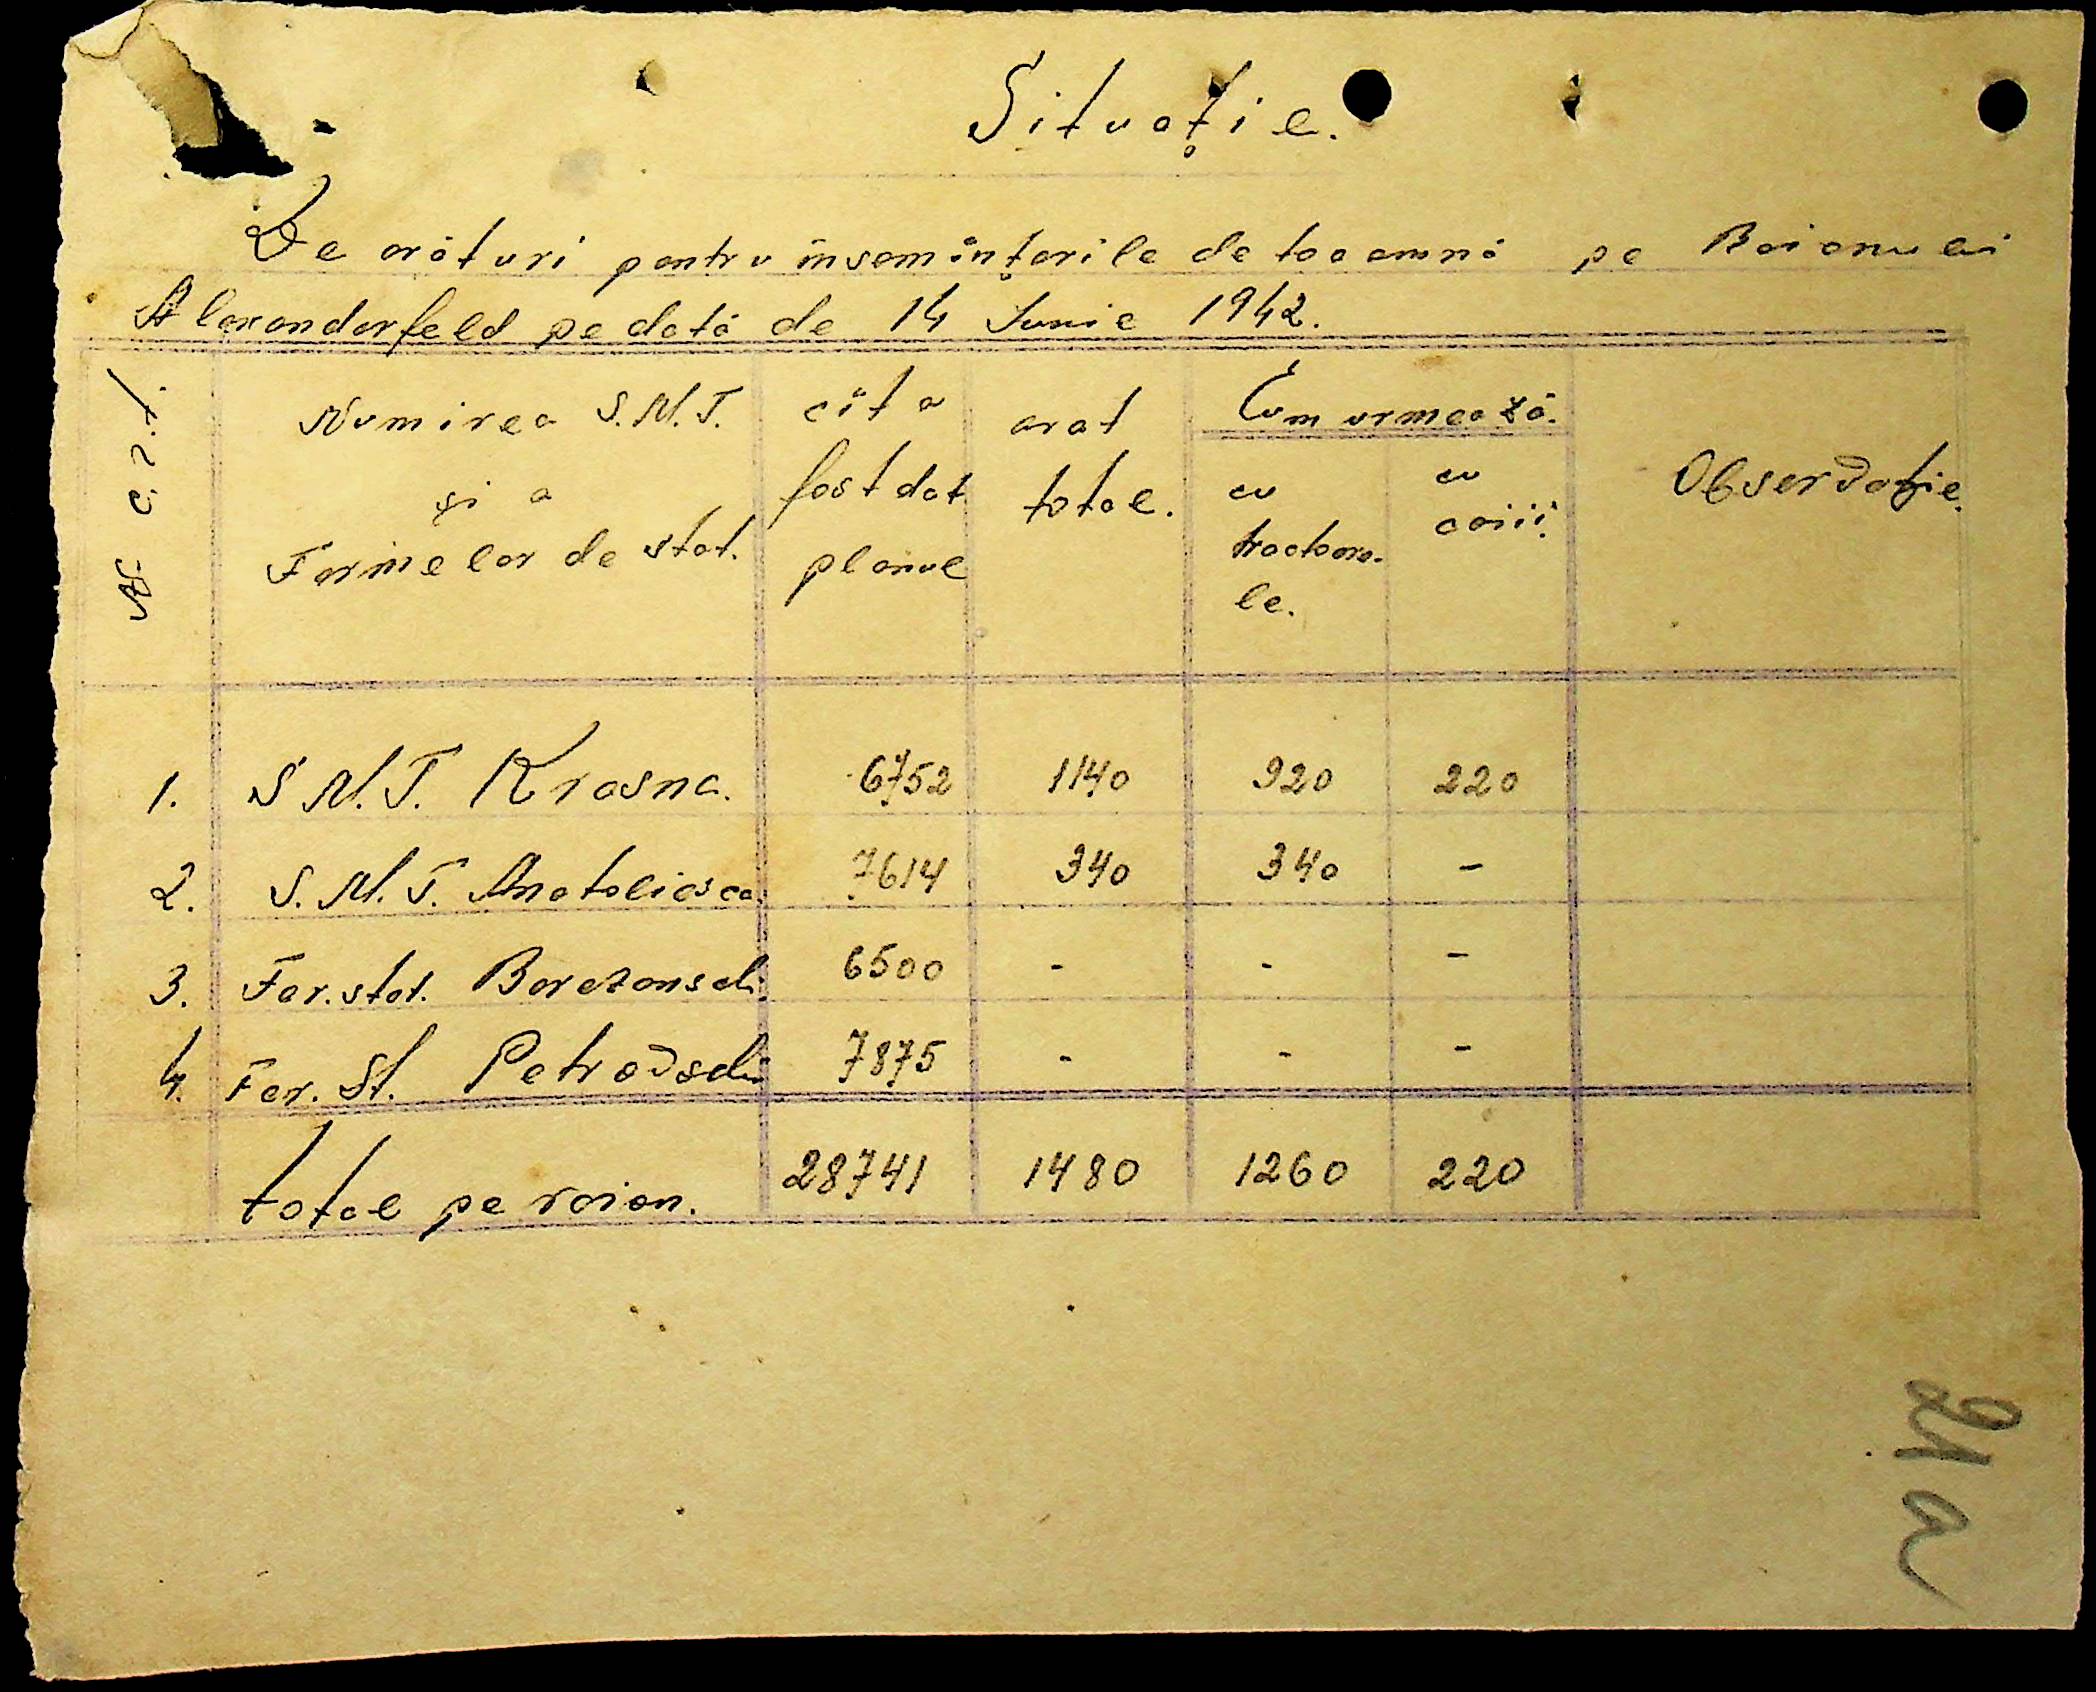 Situație.
De arături pentru însemînțarile de toaamnă pe Raionului
Alexanderfeld pe dată de 14 Iunie 1942.
Nr. c.r.t. Numirea S.M.T. cît a arat Cum urmează. Observație.
și a fost dat total. cu cu
Farmelor de stat. planul tractoara- caiii.
le.
1. S M.T. Krasna. 6752 1140 920 220
2. S.M.T. Anatoliasca. 7614 340 340 -
3. Fer. stat. Berezanschi 6500 - - -
4. Fer. St. Petrovschi 7875 - - -
total pe raion. 28741 1480 1260 220
21a